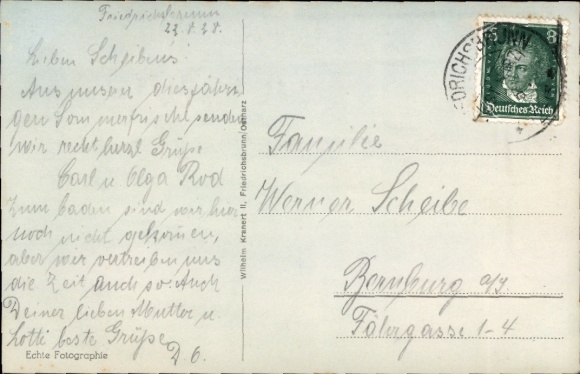 Friedrichsbrunn
23.8.28.
Lieben Scheibens!
Aus unserer diesjähri
gen Sommerfrische senden
wir recht herzl. Grüße
Carl u Olga Rod
Zum baden sind wir hier
noch nicht gekommen,
aber wir vertreiben uns
die Zeit auch so. Auch
Deiner lieben Mutter u.
Lotti beste Grüße
D. O.
Echte Fotographie
Wilhelm Kranert II, Friedrichsbrunn/Ostharz
8
Deutsches Reich
Familie
Werner Scheibe
Bernburg a/S
Fährgasse 1-4